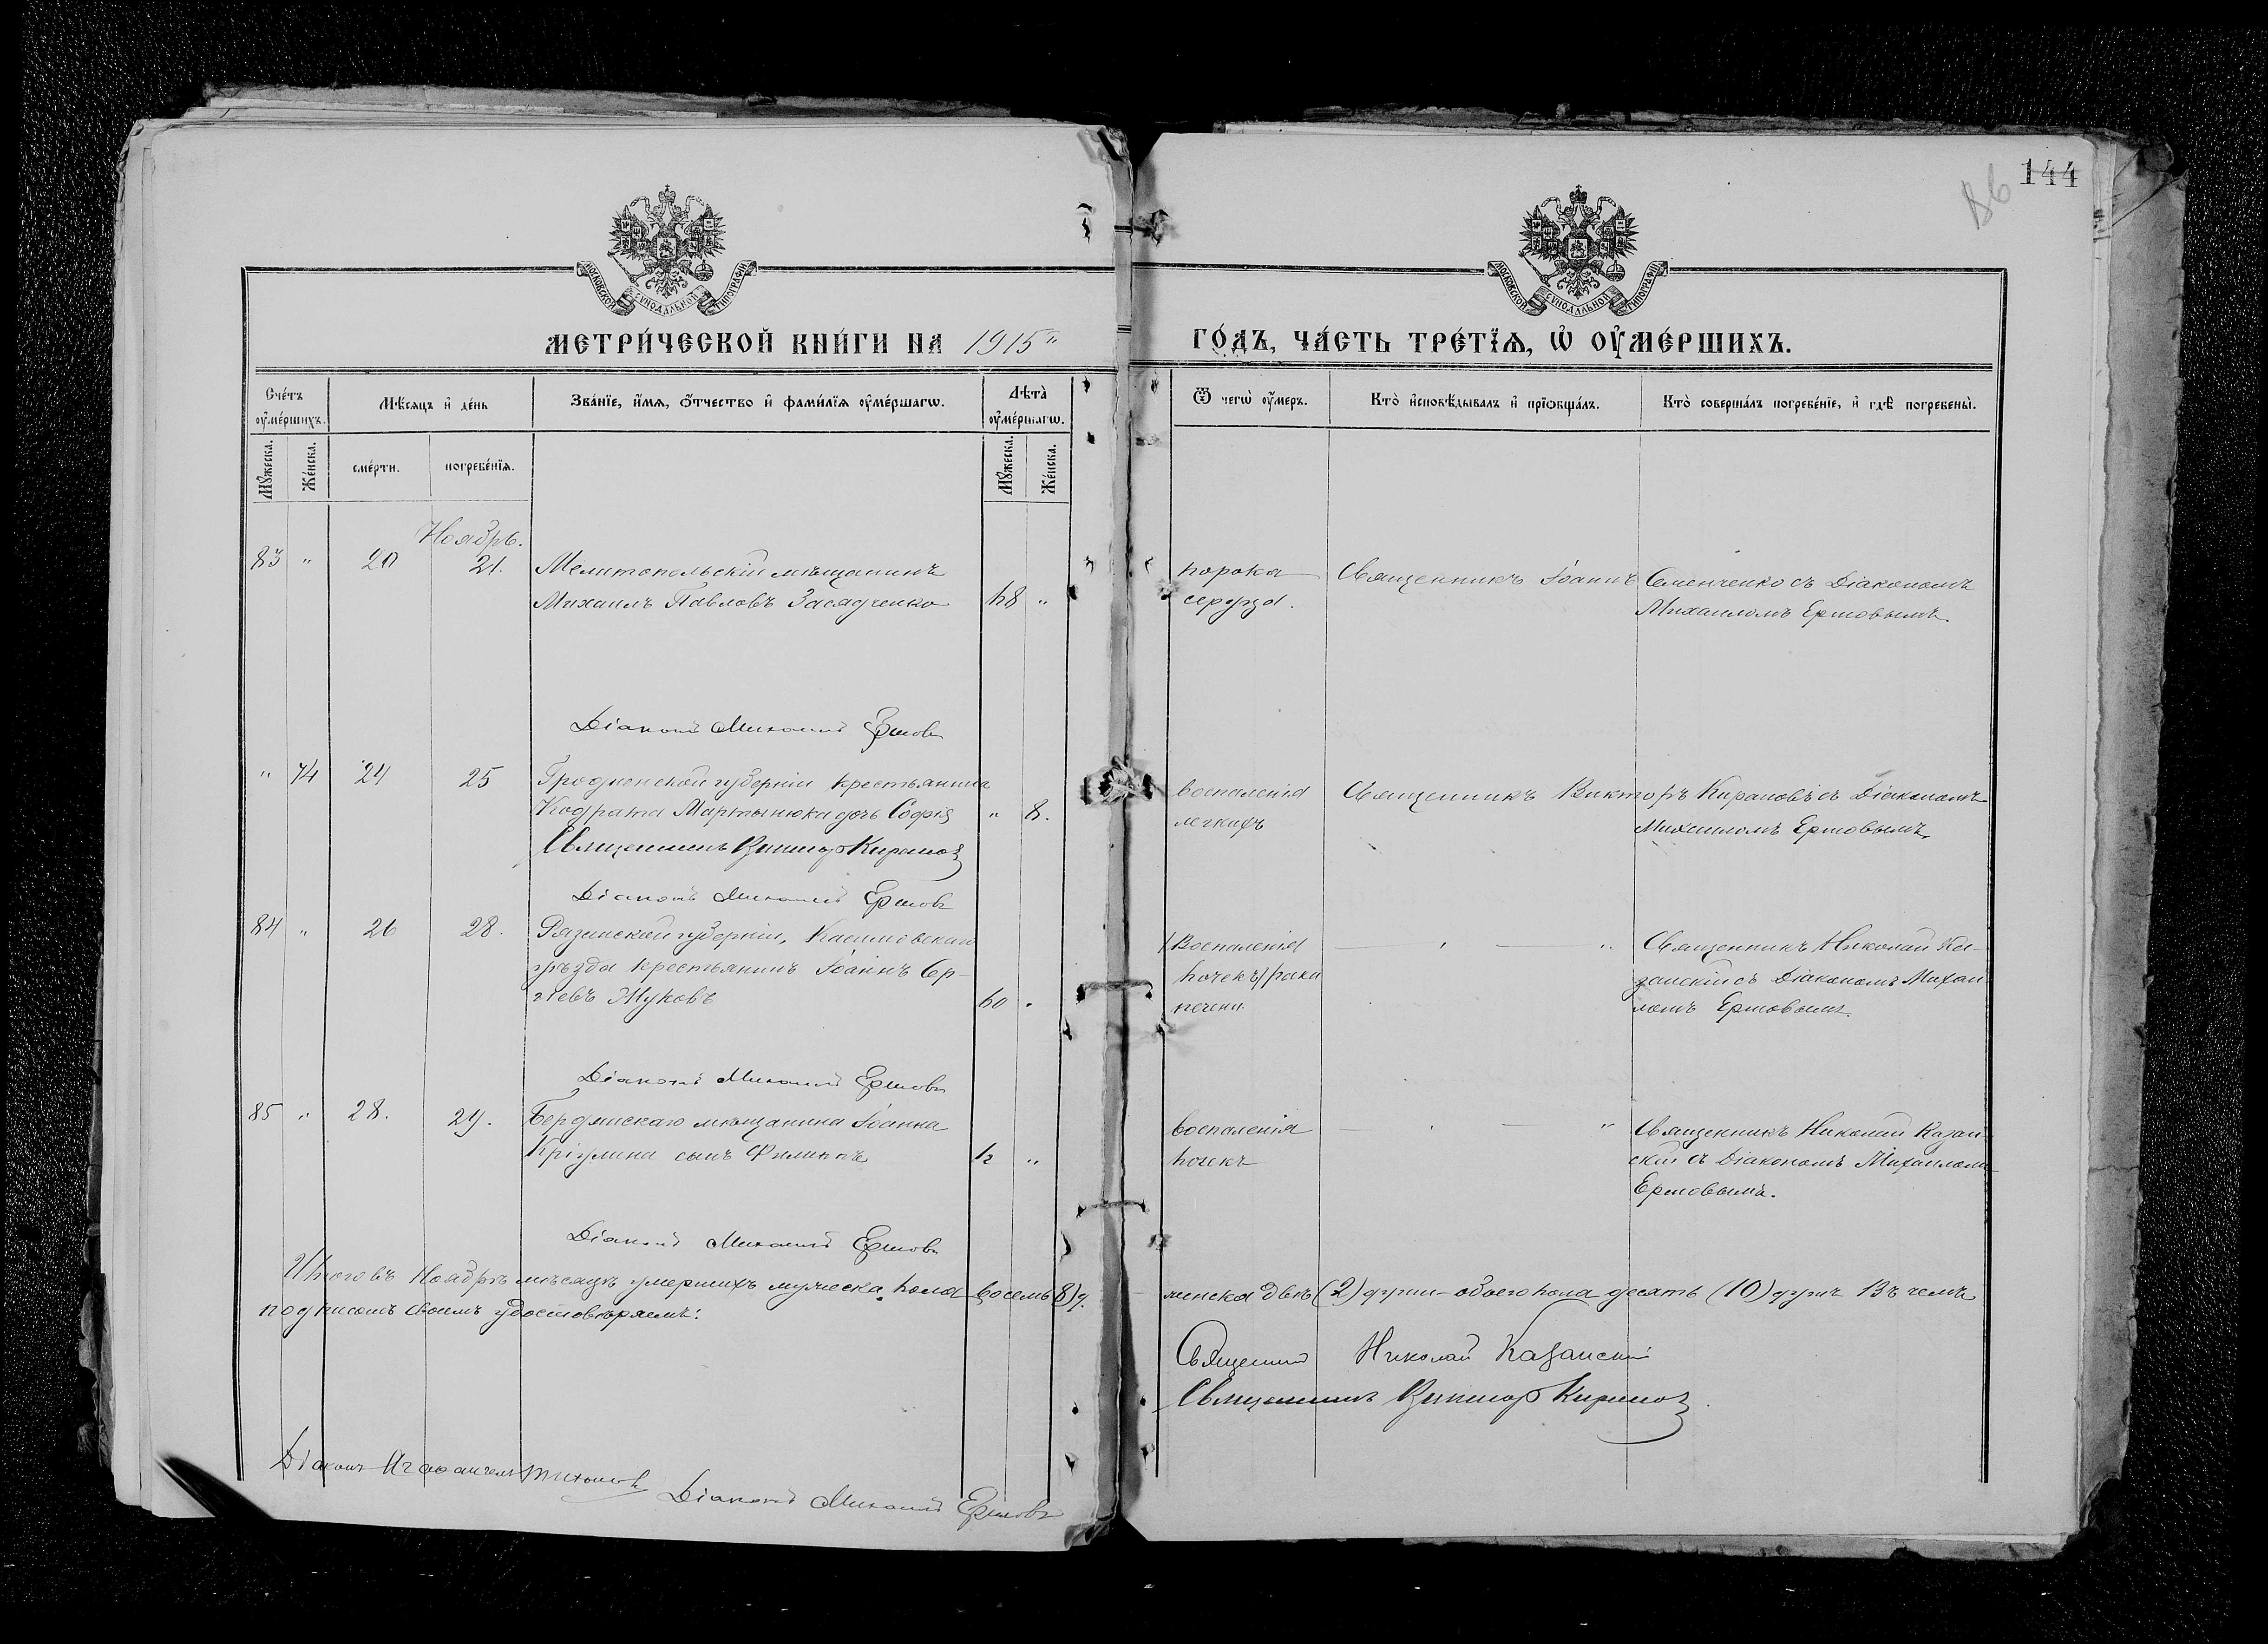 144
86
МОСКОВСКОЙ СѴНОДАЛЬНОЙ ТИПОГРАФІИ
МОСКОВСКОЙ СѴНОДАЛЬНОЙ ТИПОГРАФІИ
МЕТРИ́ЧЕСКОЙ КНИ́ГИ НА 1915"
ГО́ДЪ, ЧА́СТЬ ТРЕ́ТІѦ, Ѡ҆ ОУ҆МЕ́РШИХЪ.
Сче́тъ оу҆ме́ршихъ.
Мѣ́сяцъ и҆ де́нь
Зва́нїе, и҆́мѧ, ѻ҆́тчество и҆ фами́лїѧ оу҆ме́ршагѡ.
Лѣ́та̀ оу҆ме́ршагѡ.
Ѿ чегѡ̀ оу҆́меръ.
Кто̀ и҆сповѣ́дывалъ и҆ прїѡбща́лъ.
Кто̀ соверша́лъ погребе́нїе, и҆ гдѣ̀ погребены̀.
Мꙋ́жеска.
Же́нска.
сме́рти.
погребе́нїѧ.
Мꙋ́жеска.
Же́нска.
Ноябрь.
83 " 20 21. Мелитопольскій мѣщанинъ
Михаилъ Павловъ Засядченко 48 "
порока
сердца.
Священникъ Іоаннъ Семенченко съ Діакономъ
Михаиломъ Ершовымъ.
Діаконъ Михаилъ Ершовъ
" 74 24 25 Гродненской губерніи крестьянина
Кодрата Мартынюка дочь Софія " 8.
Священникъ Викторъ Кирановъ
воспаленія
легкихъ
Священникъ Викторъ Кирановъ съ Діакономъ
Михаиломъ Ершовымъ.
Діаконъ Михаилъ Ершовъ
84 " 26 28. Рязанской губерніи, Касимовскаго
уѣзда крестьянинъ Іоаннъ Сер-
гѣевъ Жуковъ 60 "
Воспаленія
почекъ/рака
печени.
— " — " Священникъ Николай Ка-
занскій съ Діакономъ Михаи-
ломъ Ершовымъ.
Діаконъ Михаилъ Ершовъ
85 " 28. 29. Бердянскаго мѣщанина Іоанна
сынъ Филиппъ "
воспаленія
почекъ
— " — " Священникъ Николай Казан-
скій съ Діакономъ Михаиломъ
Ершовымъ.
Діаконъ Михаилъ Ершовъ
Итого въ Ноябрѣ мѣсяцѣ умершихъ мужеска пола восемь (8) д.
женска двѣ (2) души обоего пола десять (10) душъ Въ чемъ
подписомъ своимъ удостовѣряемъ:
Священникъ Николай Казанскій
Священникъ Викторъ Кирановъ
Діаконъ Тихоновъ
Діаконъ Михаилъ Ершовъ